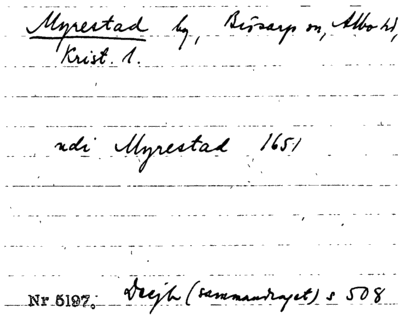 Myrestad by, Brösarp sn, Albo hd,
Krist. l.
udi Myrestad 1651
Nr 5197. (sammandraget) s 508